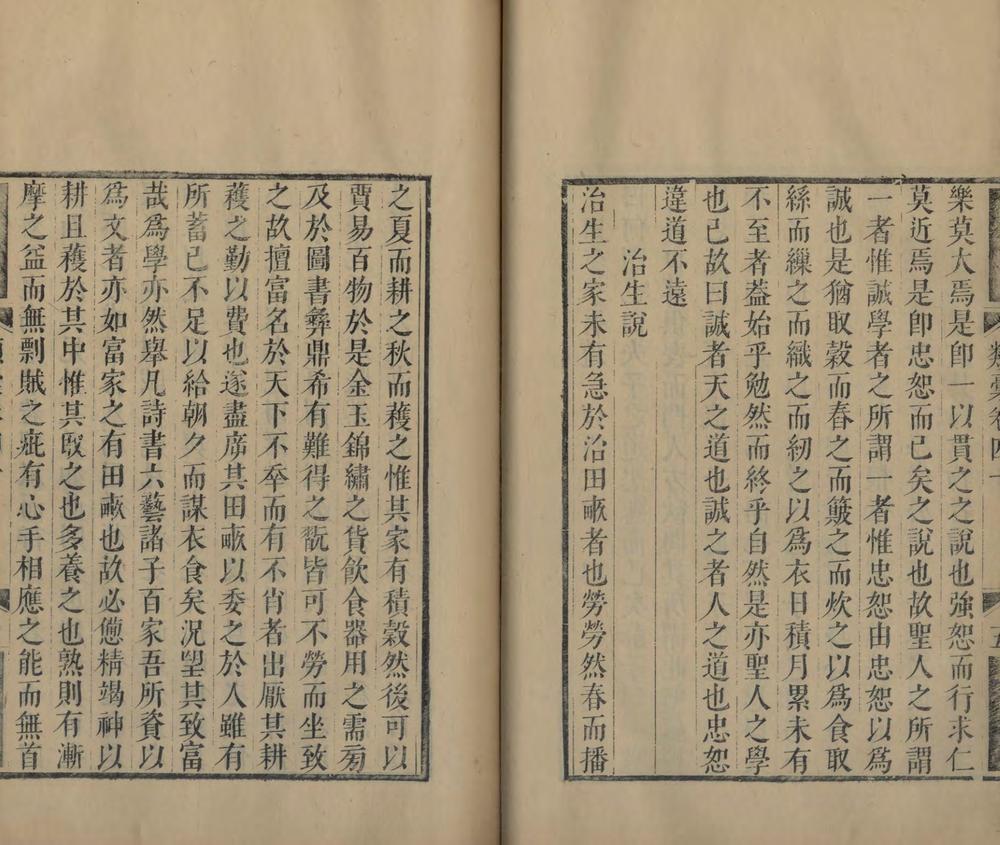 樂莫大焉是卽一以貫之之說也強恕而行求仁
莫近焉是卽忠恕而已矣之說也故聖人之所謂
一者惟誠學者之所謂一者惟忠恕由忠恕以爲
誠也是猶取穀而舂之而簸之而炊之以爲食取
絲而繅之而織之而紉之以爲衣日積月累未有
不至者葢始乎勉然而終乎自然是亦聖人之學
也已故曰誠者天之道也誠之者人之道也忠恕
違道不遠
治生說
治生之家未有急於治田畝者也勞勞然春而播
之夏而耕之秋而穫之惟其家有積穀然後可以
賈易百物於是金玉錦繡之貨飮食器用之需旁
及於圖書彝鼎希有難得之翫皆可不勞而坐致
之故擅富名於天下不卒而有不肖者出厭其耕
穫之勤以費也遂盡廃其田畝以委之於人雖有
所蓄已不足以給朝夕而謀衣食矣況望其致富
哉爲學亦然舉凡詩書六藝諸子百家吾所資以
爲文者亦如富家之有田畝也故必憊精竭神以
耕且穫於其中惟其取之也多養之也熟則有漸
摩之益而無剽賊之疵有心手相應之能而無首